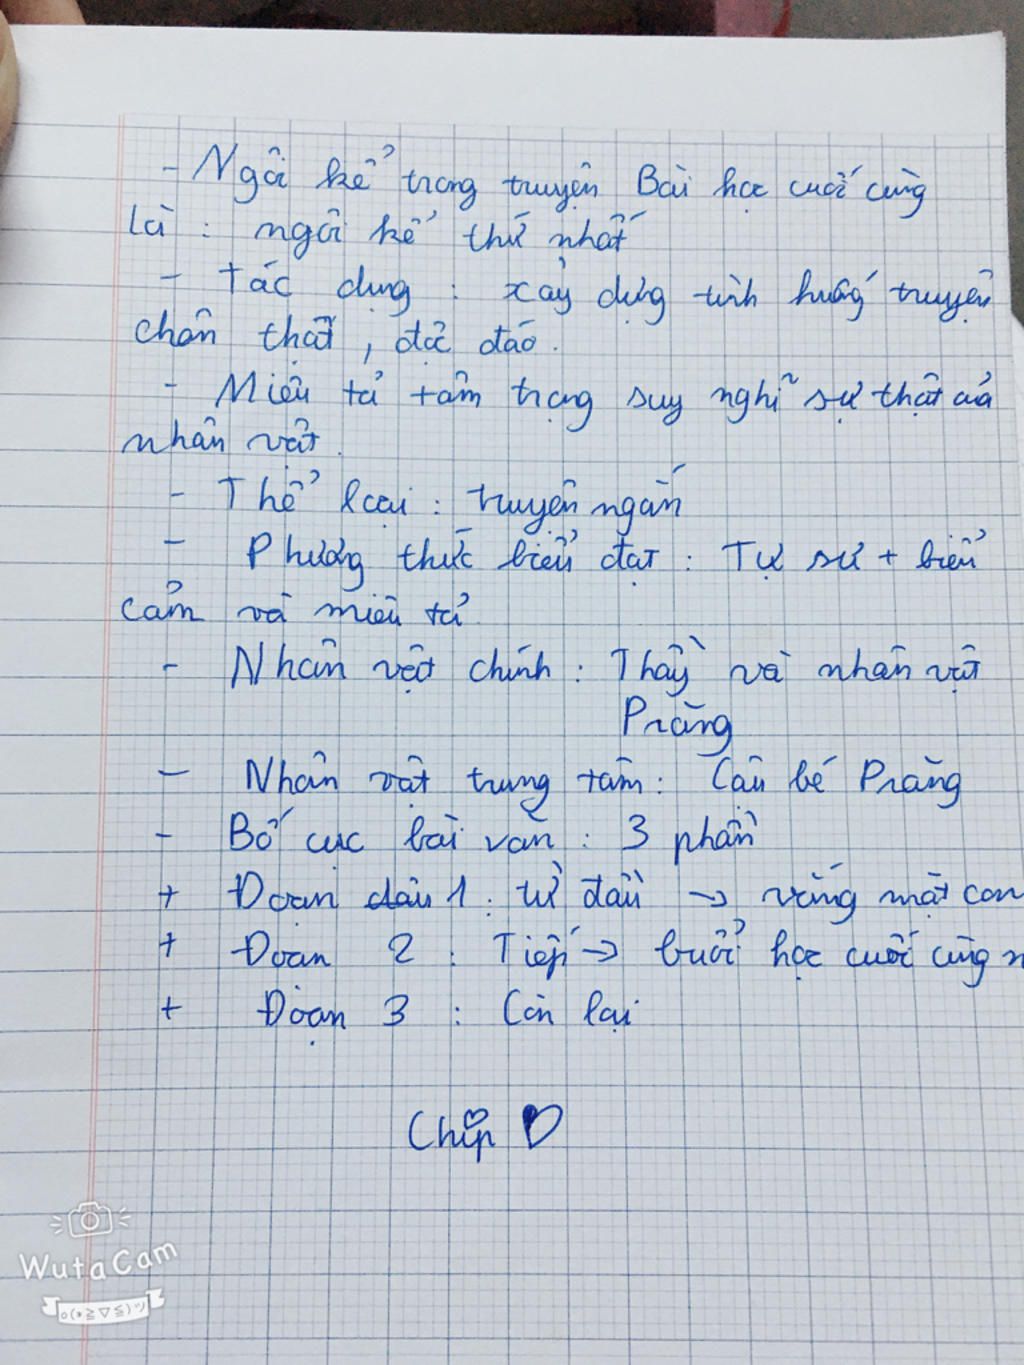 - Ngôi kể trong truyện Bài học cuối cùng
là : ngôi kể thứ nhất
- Tác dụng : xây dựng tình huống truyện
chân thật, độc đáo.
- Miêu tả tâm trạng suy nghĩ sự thật của
nhân vật.
- Thể loại : truyện ngắn
- Phương thức biểu đạt : Tự sự + biểu
cảm và miêu tả
- Nhân vật chính : Thầy và nhân vật
Phrăng
- Nhân vật trung tâm : Cậu bé Phrăng
- Bố cục bài văn : 3 phần
+ Đoạn đầu 1 : từ đầu → vắng mặt con
+ Đoạn 2 : Tiếp → buổi học cuối cùng n
+ Đoạn 3 : Còn lại
Chip ♥
WutaCam
o(*≧▽≦)ツ